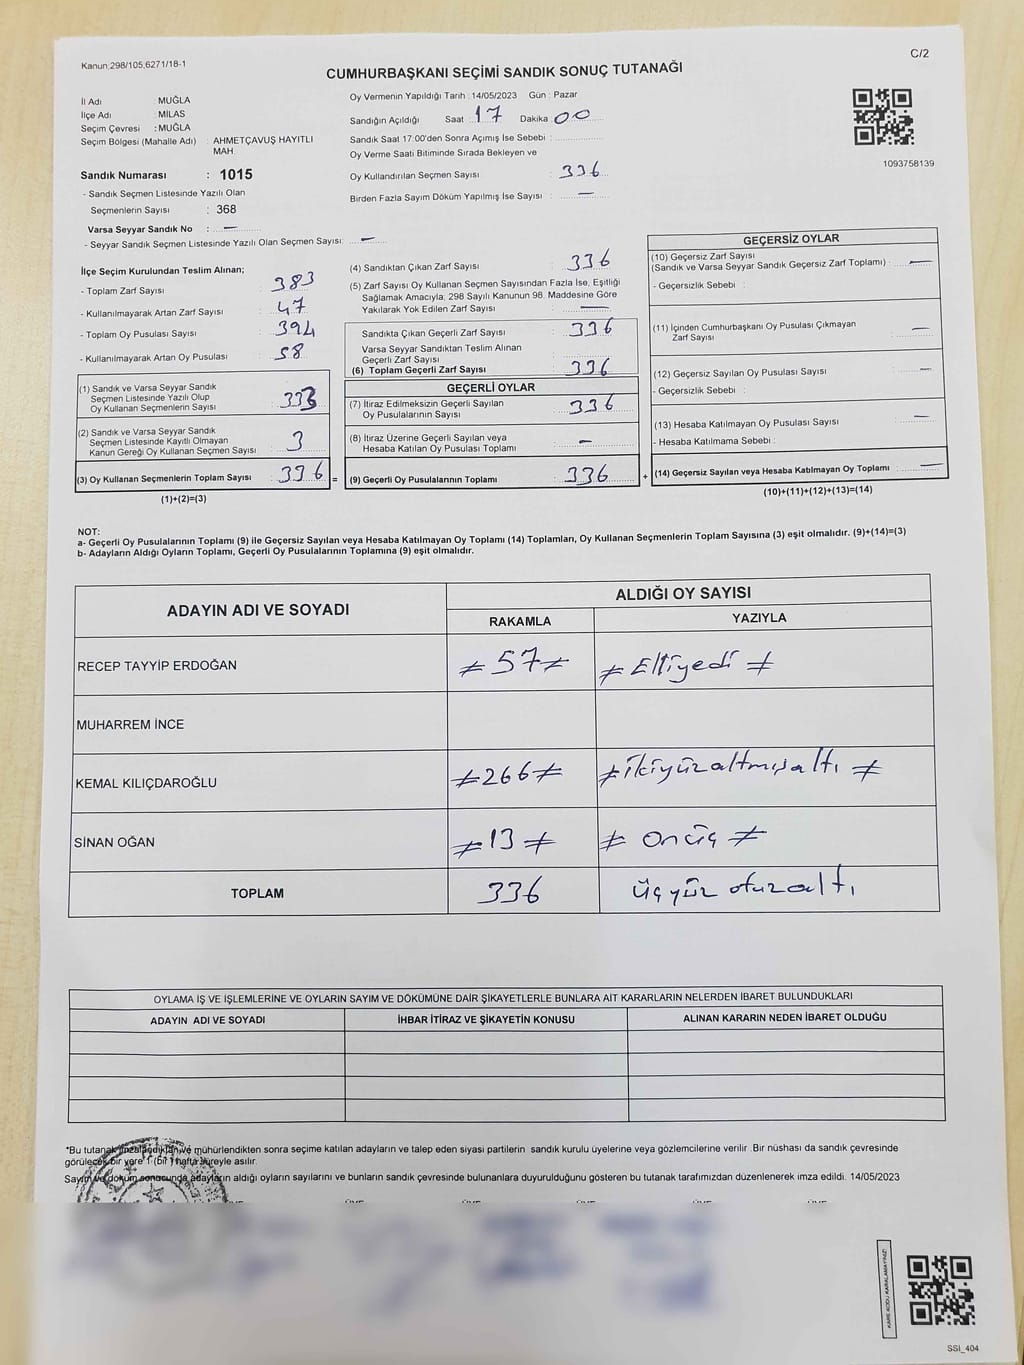 Kanun;298/105,6271/18-1
C/2
CUMHURBAŞKANI SEÇİMİ SANDIK SONUÇ TUTANAĞI
İl Adı MUĞLA
İlçe Adı : MİLAS
Seçim Çevresi : MUĞLA
Seçim Bölgesi (Mahalle Adı) : AHMETÇAVUŞ HAYITLI
MAH.
Sandık Numarası : 1015
- Sandık Seçmen Listesinde Yazılı Olan
Seçmenlerin Sayısı : 368
Varsa Seyyar Sandık No : —
- Seyyar Sandık Seçmen Listesinde Yazılı Olan Seçmen Sayısı: —
Oy Vermenin Yapıldığı Tarih : 14/05/2023 Gün : Pazar
Sandığın Açıldığı Saat : 17 Dakika : 00
Sandık Saat 17:00'den Sonra Açımış İse Sebebi :
Oy Verme Saati Bitiminde Sırada Bekleyen ve
Oy Kullandırılan Seçmen Sayısı : 336
Birden Fazla Sayım Döküm Yapılmış İse Sayısı : —
1093758139
İlçe Seçim Kurulundan Teslim Alınan;
- Toplam Zarf Sayısı : 383
- Kullanılmayarak Artan Zarf Sayısı : 47
- Toplam Oy Pusulası Sayısı : 394
- Kullanılmayarak Artan Oy Pusulası : 58
(1) Sandık ve Varsa Seyyar Sandık
Seçmen Listesinde Yazılı Olup
Oy Kullanan Seçmenlerin Sayısı : 333
(2) Sandık ve Varsa Seyyar Sandık
Seçmen Listesinde Kayıtlı Olmayan
Kanun Gereği Oy Kullanan Seçmen Sayısı : 3
(3) Oy Kullanan Seçmenlerin Toplam Sayısı : 336 =
(1)+(2)=(3)
(4) Sandıktan Çıkan Zarf Sayısı : 336
(5) Zarf Sayısı Oy Kullanan Seçmen Sayısından Fazla İse, Eşitliği
Sağlamak Amacıyla; 298 Sayılı Kanunun 98. Maddesine Göre
Yakılarak Yok Edilen Zarf Sayısı : —
Sandıkta Çıkan Geçerli Zarf Sayısı : 336
Varsa Seyyar Sandıktan Teslim Alınan
Geçerli Zarf Sayısı :
(6) Toplam Geçerli Zarf Sayısı : 336
GEÇERLİ OYLAR
(7) İtiraz Edilmeksizin Geçerli Sayılan
Oy Pusulalarının Sayısı : 336
(8) İtiraz Üzerine Geçerli Sayılan veya
Hesaba Katılan Oy Pusulası Toplamı : —
(9) Geçerli Oy Pusulalarının Toplamı : 336 +
GEÇERSİZ OYLAR
(10) Geçersiz Zarf Sayısı
(Sandık ve Varsa Seyyar Sandık Geçersiz Zarf Toplamı) : —
- Geçersizlik Sebebi :
(11) İçinden Cumhurbaşkanı Oy Pusulası Çıkmayan
Zarf Sayısı : —
(12) Geçersiz Sayılan Oy Pusulası Sayısı : —
- Geçersizlik Sebebi :
(13) Hesaba Katılmayan Oy Pusulası Sayısı : —
- Hesaba Katılmama Sebebi :
(14) Geçersiz Sayılan veya Hesaba Katılmayan Oy Toplamı : —
(10)+(11)+(12)+(13)=(14)
NOT:
a- Geçerli Oy Pusulalarının Toplamı (9) ile Geçersiz Sayılan veya Hesaba Katılmayan Oy Toplamı (14) Toplamları, Oy Kullanan Seçmenlerin Toplam Sayısına (3) eşit olmalıdır. (9)+(14)=(3)
b- Adayların Aldığı Oyların Toplamı, Geçerli Oy Pusulalarının Toplamına (9) eşit olmalıdır.
ADAYIN ADI VE SOYADI
ALDIĞI OY SAYISI
RAKAMLA YAZIYLA
RECEP TAYYİP ERDOĞAN ≠ 57 ≠ ≠ Elliyedi ≠
MUHARREM İNCE
KEMAL KILIÇDAROĞLU ≠ 266 ≠ ≠ ikiyüzaltmışaltı ≠
SİNAN OĞAN ≠ 13 ≠ ≠ onüç ≠
TOPLAM 336 üçyüz otuzaltı
OYLAMA İŞ VE İŞLEMLERİNE VE OYLARIN SAYIM VE DÖKÜMÜNE DAİR ŞİKAYETLERLE BUNLARA AİT KARARLARIN NELERDEN İBARET BULUNDUKLARI
ADAYIN ADI VE SOYADI İHBAR İTİRAZ VE ŞİKAYETİN KONUSU ALINAN KARARIN NEDEN İBARET OLDUĞU
*Bu tutanak imzalandıktan ve mühürlendikten sonra seçime katılan adayların ve talep eden siyasi partilerin sandık kurulu üyelerine veya gözlemcilerine verilir. Bir nüshası da sandık çevresinde
görülecek bir yere 1 (bir) hafta süreyle asılır.
Sayım ve döküm sonucunda adayların aldığı oyların sayılarını ve bunların sandık çevresinde bulunanlara duyurulduğunu gösteren bu tutanak tarafımızdan düzenlenerek imza edildi. 14/05/2023
KARE KODU KARALAMAYINIZ!
SSI_404